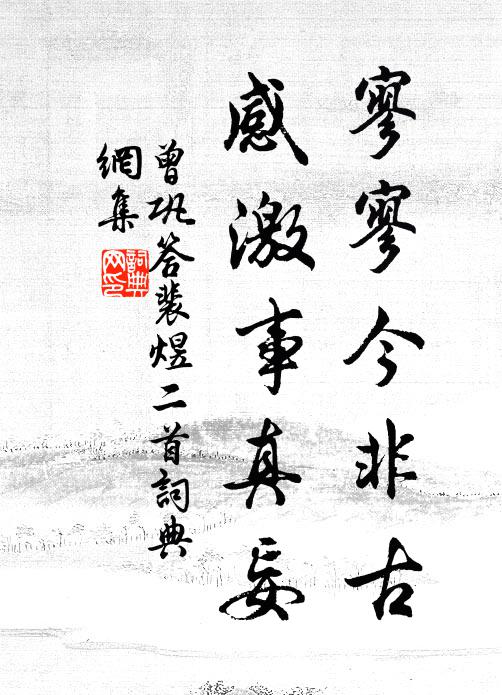 寥寥今非古
感激事真妄
曾巩答裴煜二首詞典
網集
詞典网印